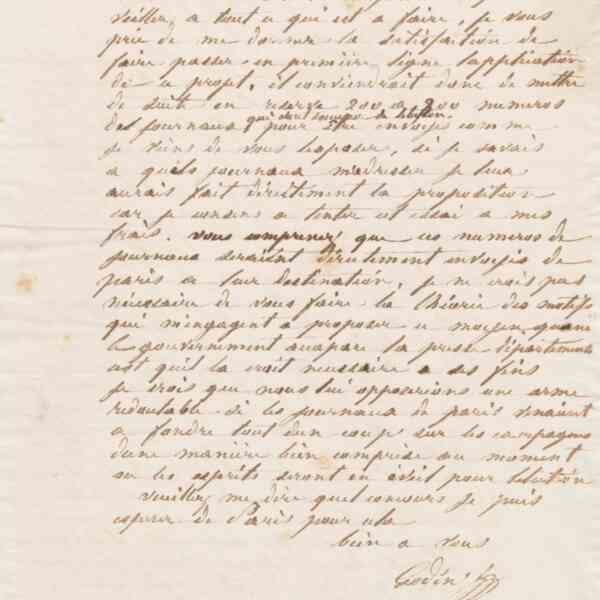 veiller a tout ce qui est a faire, je vous
prie de me donner la satisfaction de
faire passer en première ligne l'application
de ce projet, il conviendrait donc de mettre
de suite en reserve 200 a 300 numeros
des journaux qui sont occupés de l'élection, pour être envoyés comme
je viens de vous l'exposer, si je savais
a quels journaux m'adresser je leur
aurais fait directement la proposition
car je consens a tenter cet essai a mes
frais. vous comprenez que ces numeros de
journaux seraient directement envoyés de
paris a leur destination, je ne crois pas
nécessaire de vous faire la théorie des motifs
qui m'engagent a proposer ce moyen, quand
le gouvernement accapare la presse départementale
est quil la croit necessaire a ses fins
je crois que nous lui opposerions une arme
redoutable si les journaux de paris venaient
a fondre tout dun coup sur les campagnes
dune manière bien comprise au moment
ou les esprits seront en éveil pour lelection
veuillez me dire quel concours je puis
esperer de Paris pour cela
bien a vous
Godin